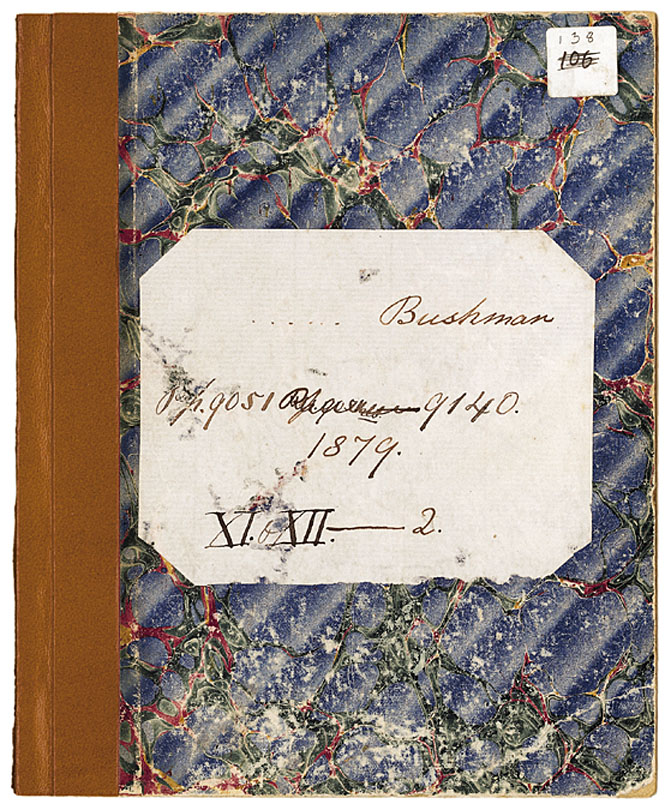 138
106
...... Bushman
Pp. 9051 9140.
1879.
XI. & XII. — 2.